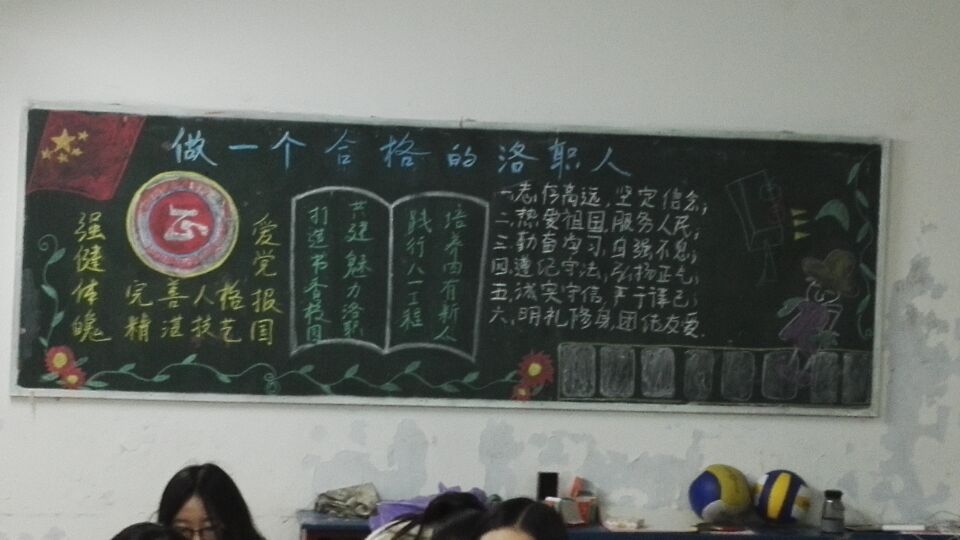 做一个合格的洛职人
强健体魄
完善人格
精湛技艺
爱党报国
打造书香校园
共建魅力洛职
践行八一工程
培养内有新人
一.志存高远,坚定信念;
二.热爱祖国,服务人民;
三.勤奋学习,自强不息;
四.遵纪守法,弘扬正气;
五.诚实守信,严于律己;
六.明礼修身,团结友爱.